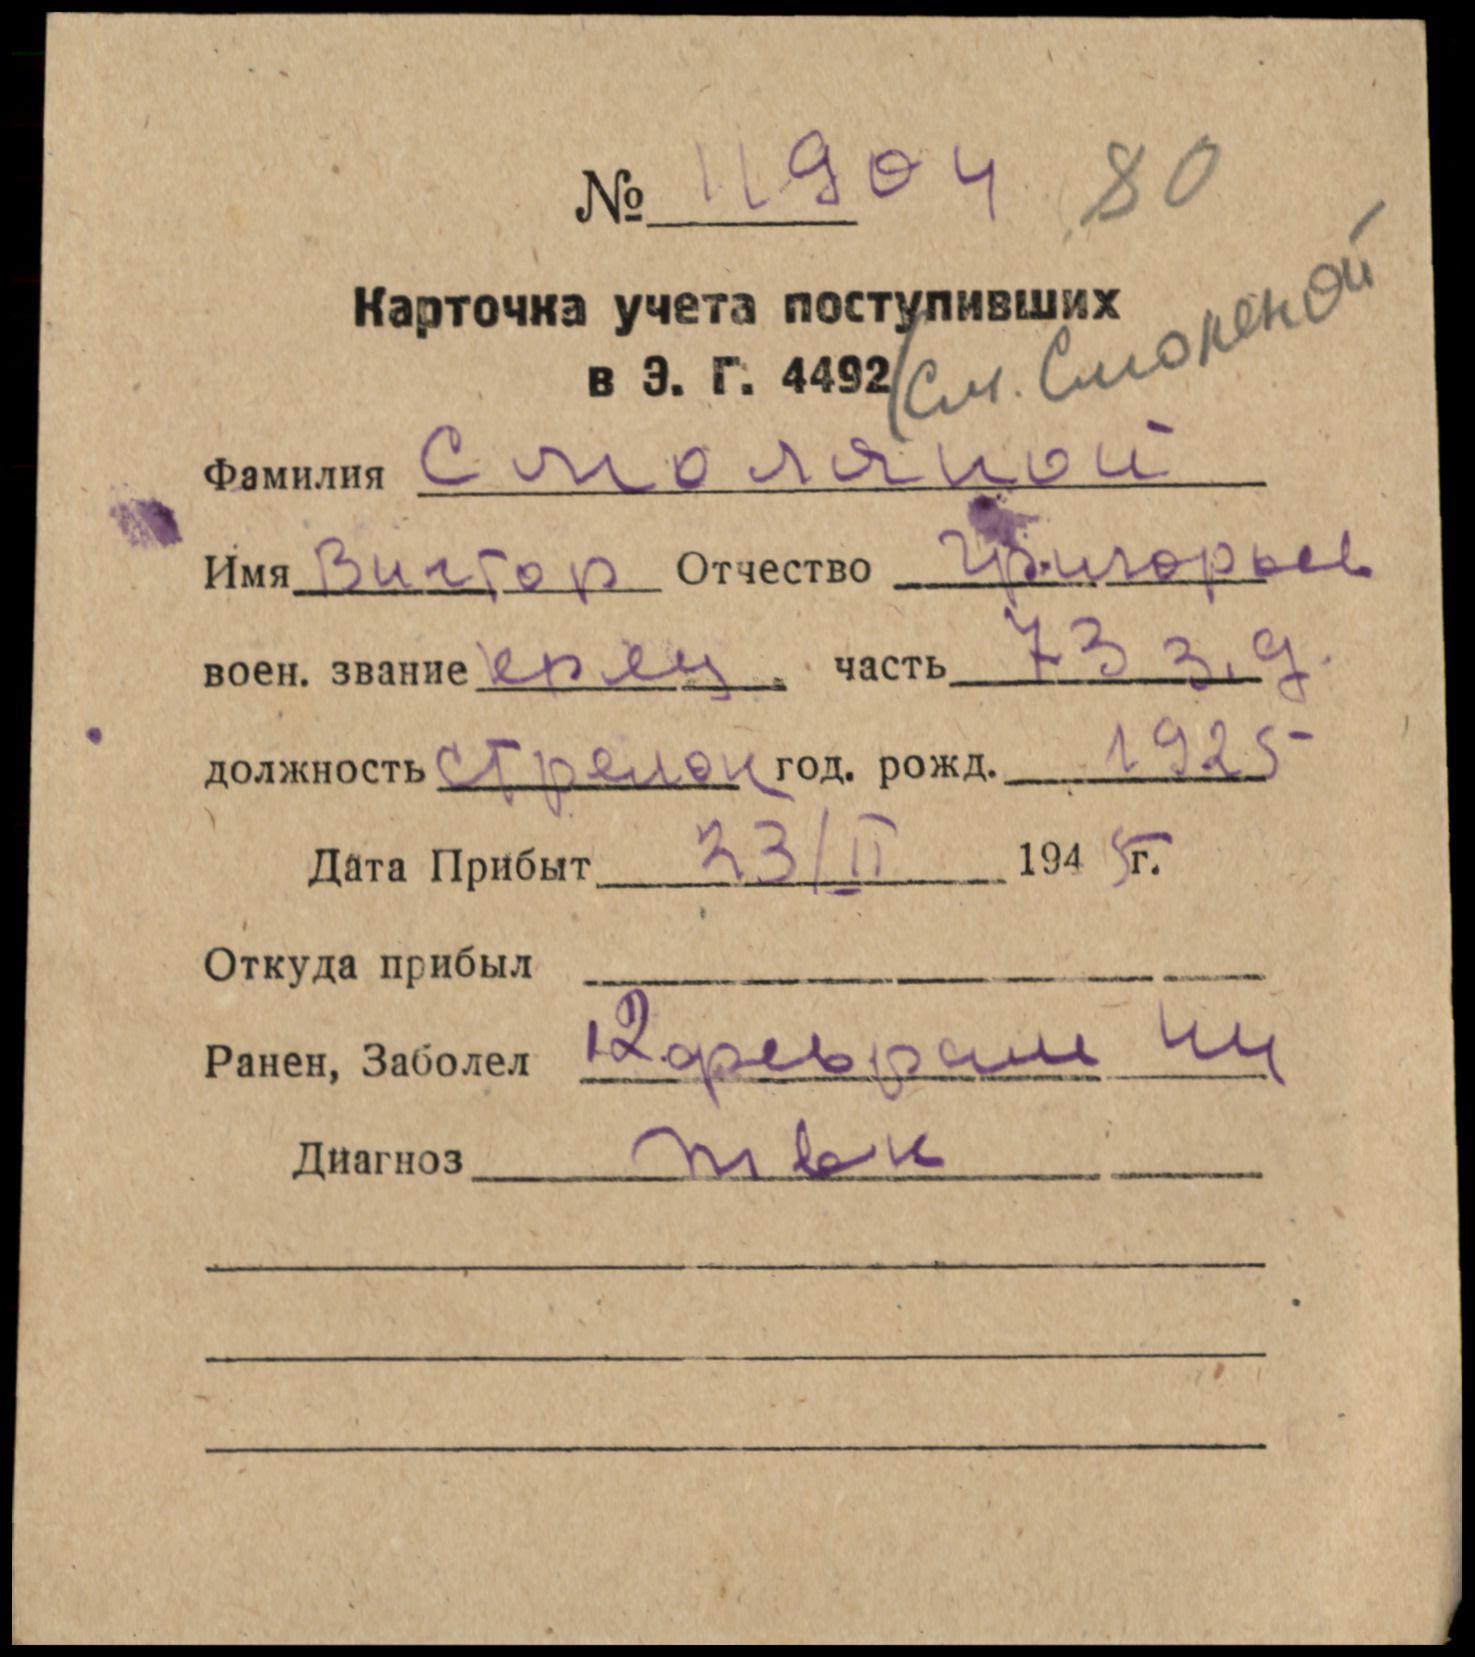 № 11904 80
Карточка учета поступивших
в Э. Г. 4492 (см. Смоленой
Фамилия Смоляной
Имя Виктор Отчество Григорьев
воен. звание кр-ец часть 73 з.д.
должность стрелок год. рожд. 1925
Дата Прибыт 23/II 1945г.
Откуда прибыл
Ранен, Заболел 12 февраля 44
Диагноз твк